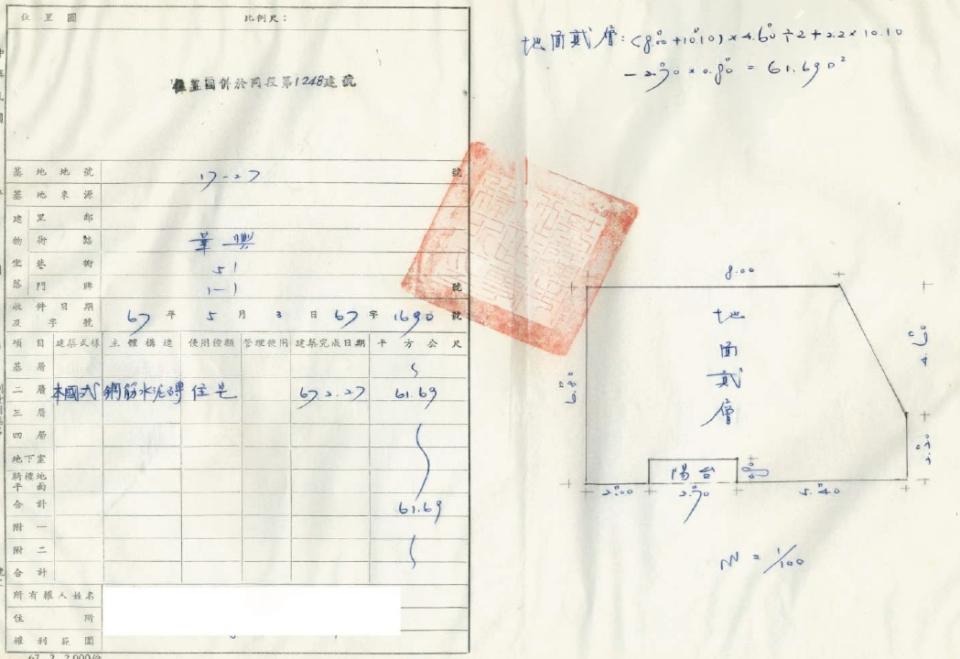 位置圖 比例尺：
位置圖併於同段第1248建號
基地地號 17-27 號
基地來源
建 里 鄰
物 街 路 華興
坐 巷 衖 51
落 門牌 1-1 號
收件日期 67年5月3日 67字1690號
及字號
項目 建築式樣 主體構造 使用種類 管理使用 建築完成日期 平方公尺
基層
二層 本國式 鋼筋水泥磚 住宅 67.2.27 61.69
三層
四層
地下室
騎樓地
平面
合計 61.69
附一
附二
合計
所有權人姓名
住所
權利範圍
67. 2. 2,000份
地面貳層：(8.00+10.10)×4.60÷2+2.2×10.10
-2.90×0.80=61.69
8.00
地面貳層
6.80
4.60
2.20
陽台
0.80
2.00 2.70 5.40
1/100